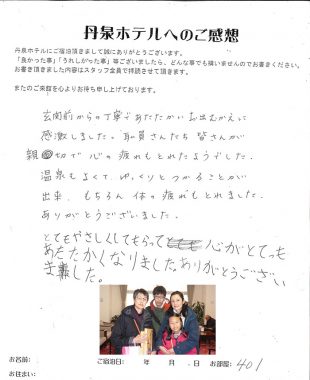 丹泉ホテルへのご感想
丹泉ホテルにご宿泊頂きまして誠にありがとうございます。
「良かった事」「うれしがった事」等ございましたら、どんな事でも構いませんのでお書きください。
お書き頂きました内容はスタッフ全員で拝読させて頂きます。
またのご来館を心よりお待ち申し上げております。
玄関前からの丁寧であたたかいお出むかえに
感激しました。職員さんたち皆さんが
親切で心の疲れもとれたようでした。
温泉もよくて、ゆっくりとつかることが
出来、もちろん体の疲れもとれました。
ありがとうございました。
とてもやさしくしてもらって心がとても
あたたかくなりました。ありがとうござい
ました。
お名前:
ご宿泊日: 年 月 日 お部屋: 401
お住まい: